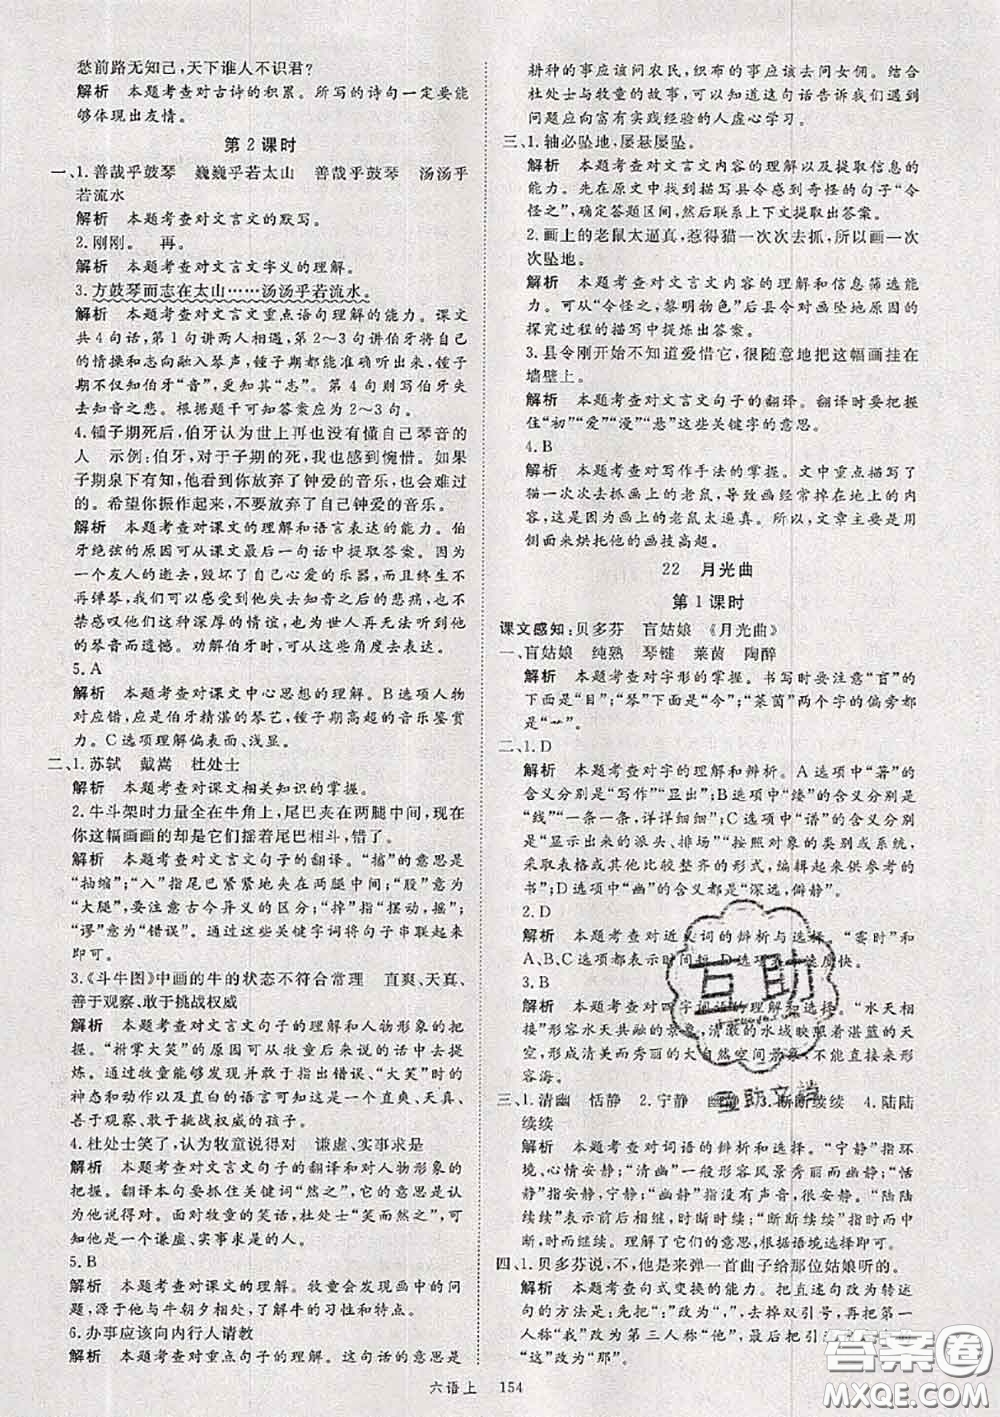 愁前路无知己,天下谁人不识君?
解析 本题考查对古诗的积累。所写的诗句一定要能
够体现出友情。
第2课时
一、1.善哉乎鼓琴 巍巍乎若太山 善哉乎鼓琴 汤汤乎
若流水
解析 本题考查对文言文的默写。
2.刚刚。 再。
解析 本题考查对文言文字义的理解。
3.方鼓琴而志在太山……汤汤乎若流水。
解析 本题考查对文言文重点语句理解的能力。课文
共4句话,第1句讲两人相遇,第2、3句讲伯牙将自己
的情操和志向融入琴声,锺子期都能准确听出来,锺子
期不仅知伯牙“音”,更知其“志”。第4句则写伯牙失
去知音之悲。根据题干可知答案应为2~3句。
4.锺子期死后,伯牙认为世上再也没有懂自己琴音的
人 示例:伯牙,对于子期的死,我也感到惋惜。如果
子期泉下有知,他看到你放弃了钟爱的音乐,也会感到
难过的。希望你振作起来,不要放弃了自己钟爱的音乐。
解析 本题考查对课文的理解和语言表达的能力。伯
牙绝弦的原因可从课文最后一句话中提取答案。因为
友人的逝去,毁坏了自己心爱的乐器,而且表示终生不
再弹琴,从这里能够体会到失去知音之后的悲痛,也不
禁感叹他们这种深厚的情谊,也为世人再无法听到他
的琴音而遗憾。劝解伯牙时,可从这几点入手。
5.A
解析 本题考查对课文中心思想的理解。B选项人物
对应错,应是伯牙精湛的琴艺,锺子期高超的音乐鉴赏
力。C选项理解偏表面、浅显。
二、1.苏轼 戴嵩 杜处士
解析 本题考查对课文相关知识的掌握。
2.牛斗架时力量全在牛角上,尾巴夹在两腿中间,现在
你这幅画画的却是它们摇着尾巴相斗,错了。
解析 本题考查对文言文句子的翻译。“搐”的意思是
“抽缩”;“入”指尾巴紧紧地夹在两腿中间;“股”意为
“大腿”,要注意古今异义的区分;“掉”指“摆动,摇”;
“谬”意为“错误”。通过这些关键字词将句子串联起来
即可。
3.《斗牛图》中画的牛的状态不符合常理 直爽、天真、
善于观察、敢于挑战权威
解析 本题考查对文言文句子的理解和人物形象的把
握。“拊掌大笑”的原因可从牧童后来说的话中去提
炼。通过牧童观察到《斗牛图》中指出错误、“大笑”的
神态和动作以及直白的语言可知这是一个直爽、天真、
善于观察、敢于挑战权威的孩子。
4.杜处士笑了,认为牧童说得对 谦虚、实事求是
解析 本题考查对文言文句子的翻译和对人物形象的
把握。翻译本句要抓住关键词“然之”,它的意思是认
为说得对。面对牧童的笑话,杜处士“笑而然之”,说明
他是一个谦虚、实事求是的人。
5.B
解析 本题考查对课文的理解。牧童会发现画中的问
题,源于他与牛朝夕相处,了解牛的习性和特点。
6.办事应该向内行人请教
解析 本题考查对重点句子的理解。这句话的意思是
耕种的事应该问农民,织布的事应该去问女佣。结合
杜处士与牧童的故事,可以知道这句话告诉我们遇到
问题应向富有实践经验的人虚心学习。
三、1.轴必坠地,屡悬屡坠。
解析 本题考查对文言文内容的理解以及提取信息的
能力。先在原文中找到描写县令感到奇怪的句子“令
怪之”,确定答题区间,然后联系上下文提取出答案。
2.画上的老鼠太逼真,惹得猫一次次去抓,所以画一次
次坠地。
解析 本题考查对文言文内容的理解和信息筛选能
力。可从“令怪之,黎明物色”后县令对画坠地原因的
探究过程的描写中提炼出答案。
3.县令刚开始不知道爱惜它,很随意地把这幅画挂在
墙壁上。
解析 本题考查对文言文句子的翻译。翻译时要把握
住“初”“爱”“漫”“悬”这些关键字的意思。
4.B
解析 本题考查对写作手法的掌握。文中重点描写了
猫一次次去抓画上的老鼠,导致画经常掉在地上的现
象,表现出画上的老鼠太逼真。所以,文章主要是用
侧面来烘托他的画技高超。
22 月光曲
第1课时
课文感知:贝多芬 盲姑娘 《月光曲》
一、盲姑娘 纯熟 琴键 莱茵 陶醉
解析 本题考查对字形的掌握。书写时要注意“盲”的
下面是“目”;“琴”的下面是“今”;“莱茵”两个字的偏旁都是
“艹”。
二、1.D
解析 本题考查对字的理解和辨析。A选项中“著”的
含义分别是“写作”“显出”;B选项中“缕”的含义分别是
“线”“一条一条,详详细细”;C选项中“谱”的含义分别
是“显示出来的派头、排场”“按照对象的类别或系统,
采取表格或其他比较整齐的形式,编辑起来供参考的
书”;D选项中“幽”的含义都是“深远,僻静”。
2.D
解析 本题考查对近义词的辨析与选择。“霎时”和
A、B、C选项都表示时间
3.B
解析 本题考查对四字词语的理解和选择。“水天相
接”形容水天共融的景象,清澈的水域映着湛蓝的天
空,从而形成秀丽的大自然空间景象,不能直接来形
容海。
三、1.清幽 恬静 2.宁静 幽静 3.断断续续 4.陆陆
续续
解析 本题考查对词语的辨析和选择。“宁静”指环
境、心情安静;“清幽”一般形容风景秀丽而幽静;“恬
静”指安静,宁静;“幽静”指没有声音,很安静。“陆陆
续续”表示前后相继,时断时续;“断断续续”指时而中
断,时而继续。理解了它们的意思,根据语境选择即可。
四、1.贝多芬说,不,他是来弹一首曲子给那位姑娘听的。
解析 本题考查句式变换的能力。把直述句改为转述
句的方法是:先把“:”改为“,”,去掉双引号,再把第一
人称“我”改为第三人称“他”,最后把
“这”改为“那”。
六语上 154
互助
互助文档
答案圈
MXQE.COM